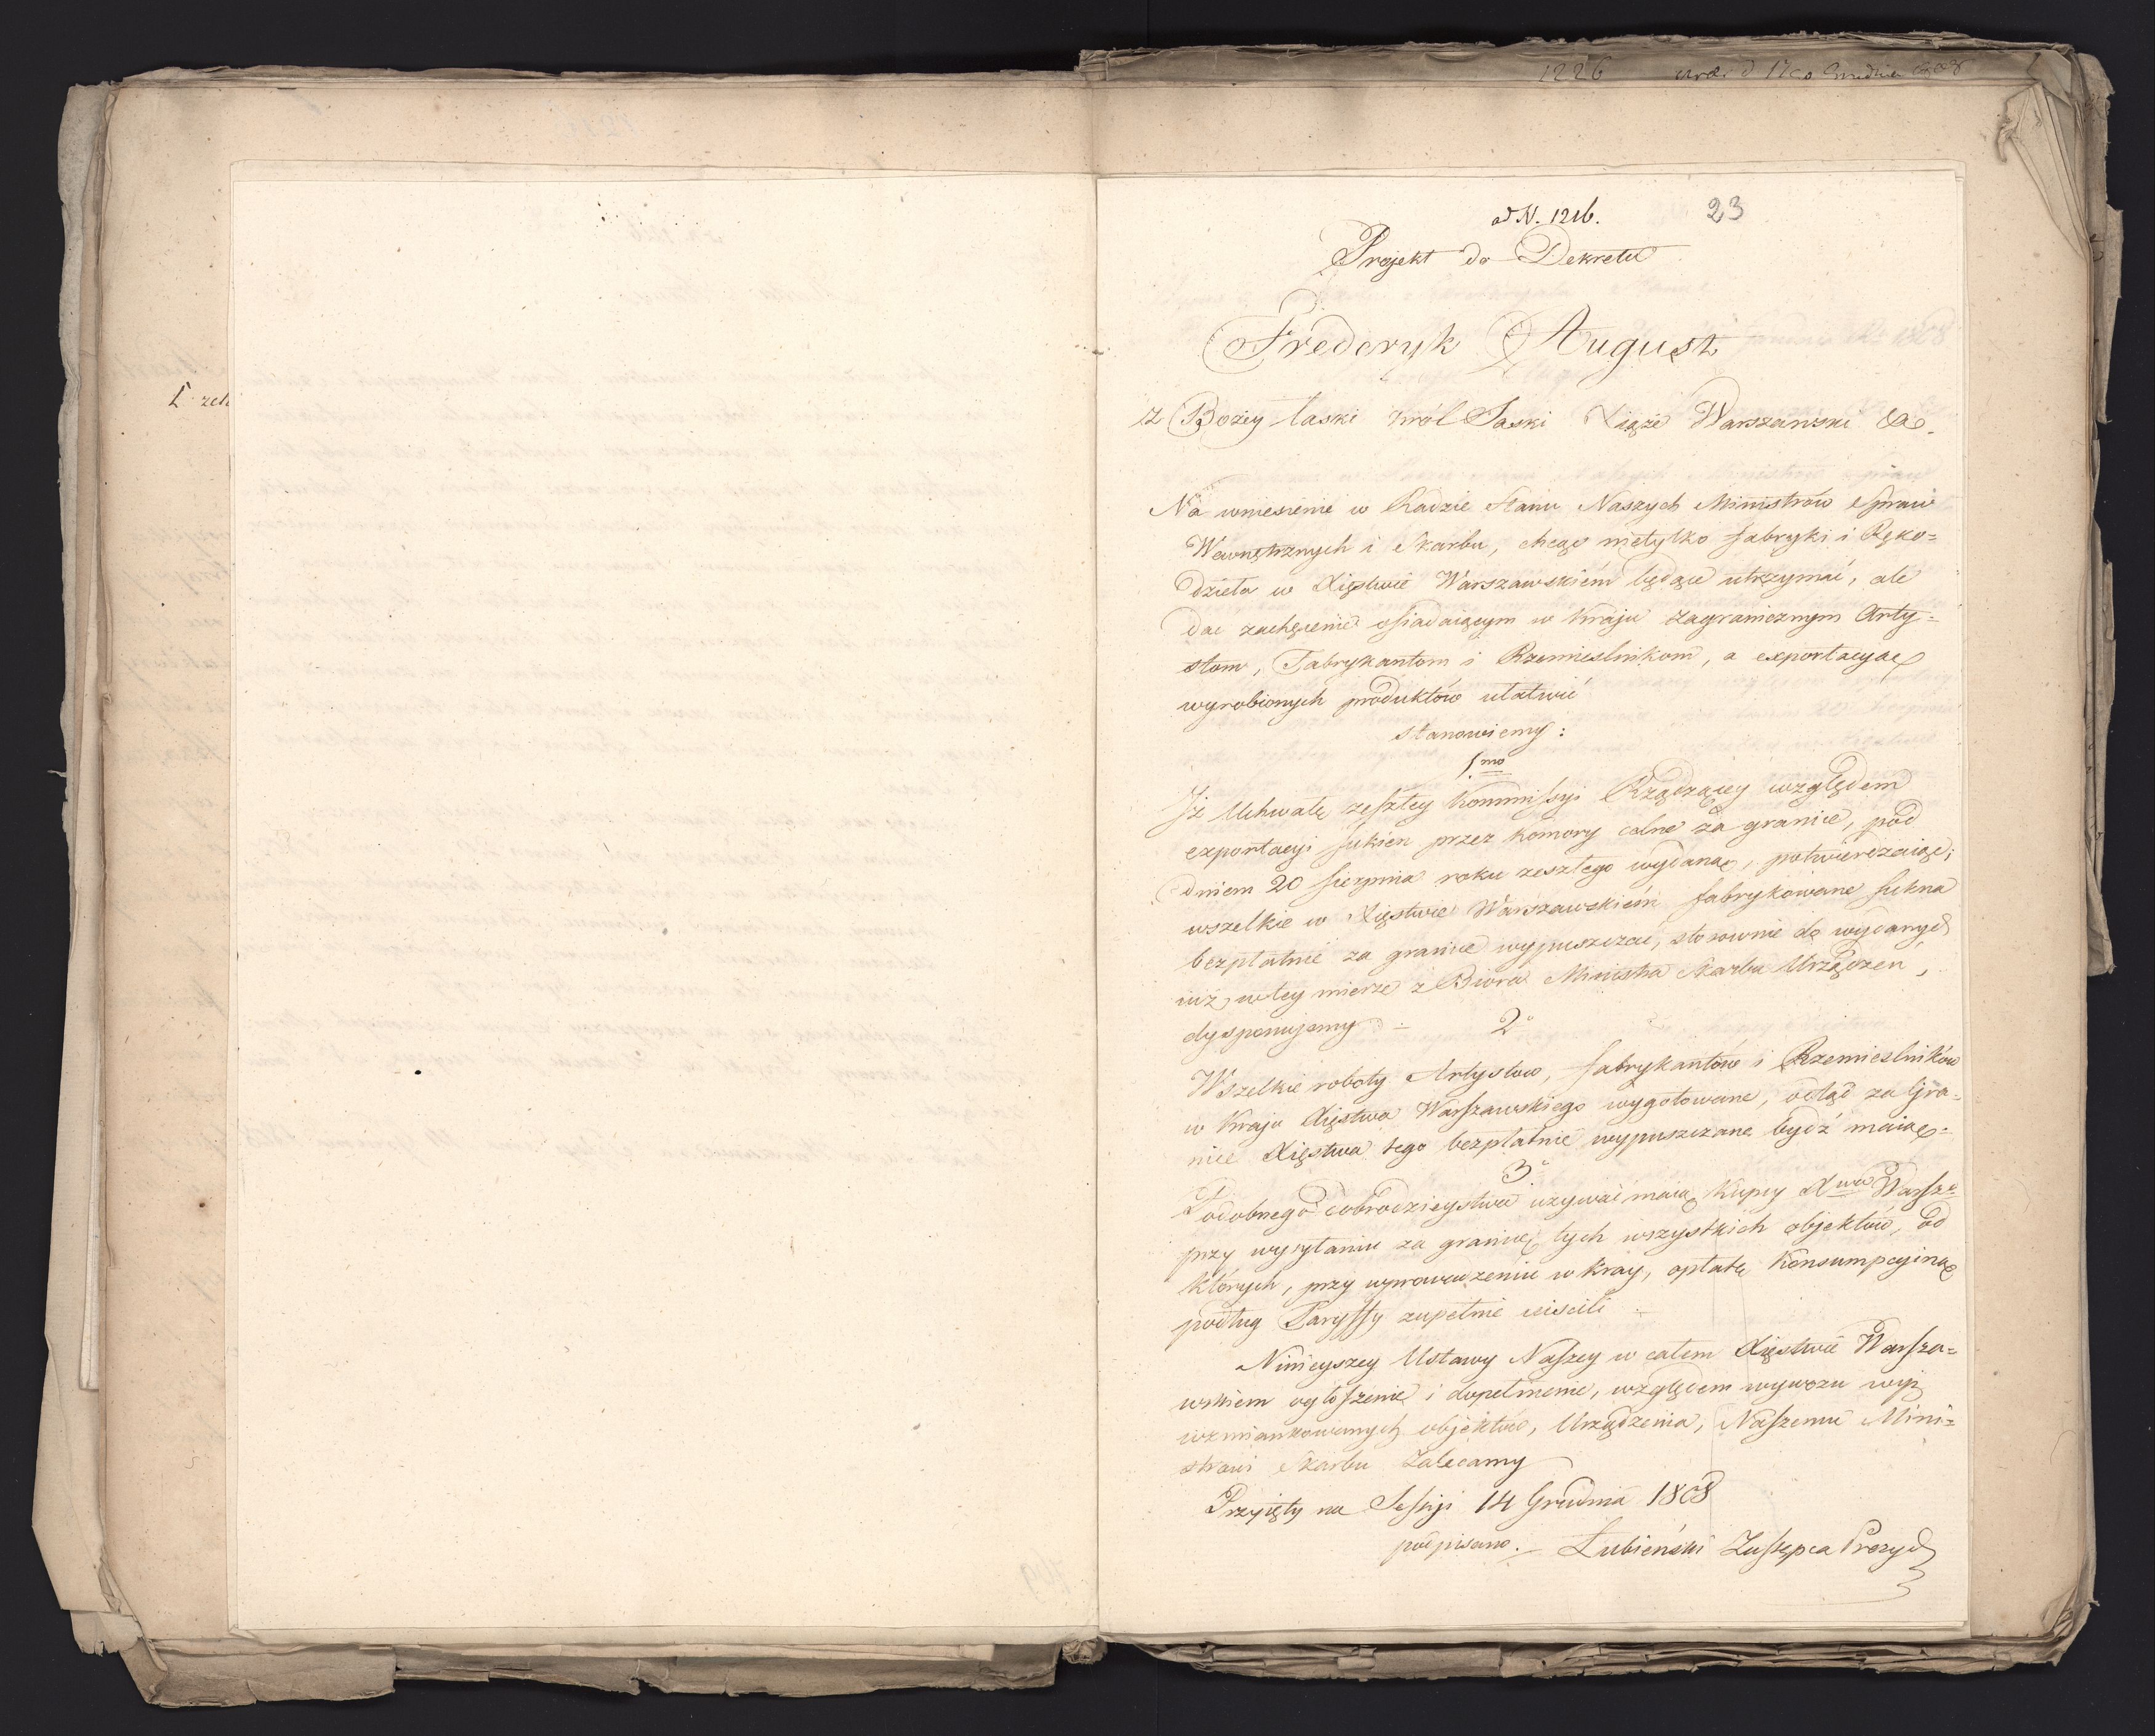 1226
ad N. 1216. 23
Projekt do Dekretu
Frederyk August
z Bożey łaski Król Saski Xiąże Warszawski &c.
Na wniesienie w Radzie Stanu Naszych Ministrów Spraw
Wewnętrznych i Skarbu, chcąc nietylko fabryki i Ręko=
dzieła w Xięstwie Warszawskiém będące utrzymać, ale
dać zachęcenie osiadaiącym w kraju zagranicznym Arty=
stom, Fabrykantom i Rzemieslnikom, a exportacyą
wyrobionych produktów ułatwić
stanowiemy:
1mo
Iż Uchwałę zeszłey Kommissyi Rządzącey względem
exportacyi sukien przez komory celne za granice, pod
dniem 20 sierpnia roku zeszłego wydaną, potwierdzaiąc;
wszelkie w Xięstwie Warszawskiém fabrykowane sukna
bezpłatnie za granice wypuszczać, stosownie do wydanych
iuż w tey mierze z Biora Ministra Skarbu Urządzeń,
dysponujemy :- 2°
Wszelkie roboty Artystow, fabrykantów i Rzemieslników
w Kraju Xięstwa Warszawskiego wygotowane, odtąd za Gra=
nice Xięstwa tego bezpłatnie wypuszczane bydź maią.
3°
Podobnego dobrodzieystwa używać maią Kupcy Xwa Warsz:
przy wysyłaniu za granicę tych wszystkich objektów, od
których, przy wprowadzeniu w kray, opłatę Konsumpcyiną
podług Taryffy zupełnie uiscili.
Ninieyszey Ustawy Naszey w całem Xięstwie Warsza=
wskiem ogłoszenie i dopełnienie, względem wywozu wyż
wzmiankowanych objektów, Urządzenia, Naszemu Mini=
strowi Skarbu Zalecamy
Przyięty na Sessyi 14 Grudnia 1808
podpisano. Łubieński Zastępca Prezyd